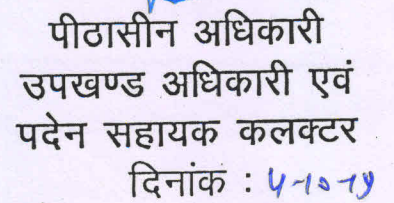 पीठासीन अधिकारी
उपखण्ड अधिकारी एवं
पदेन सहायक कलक्टर
दिनांक :